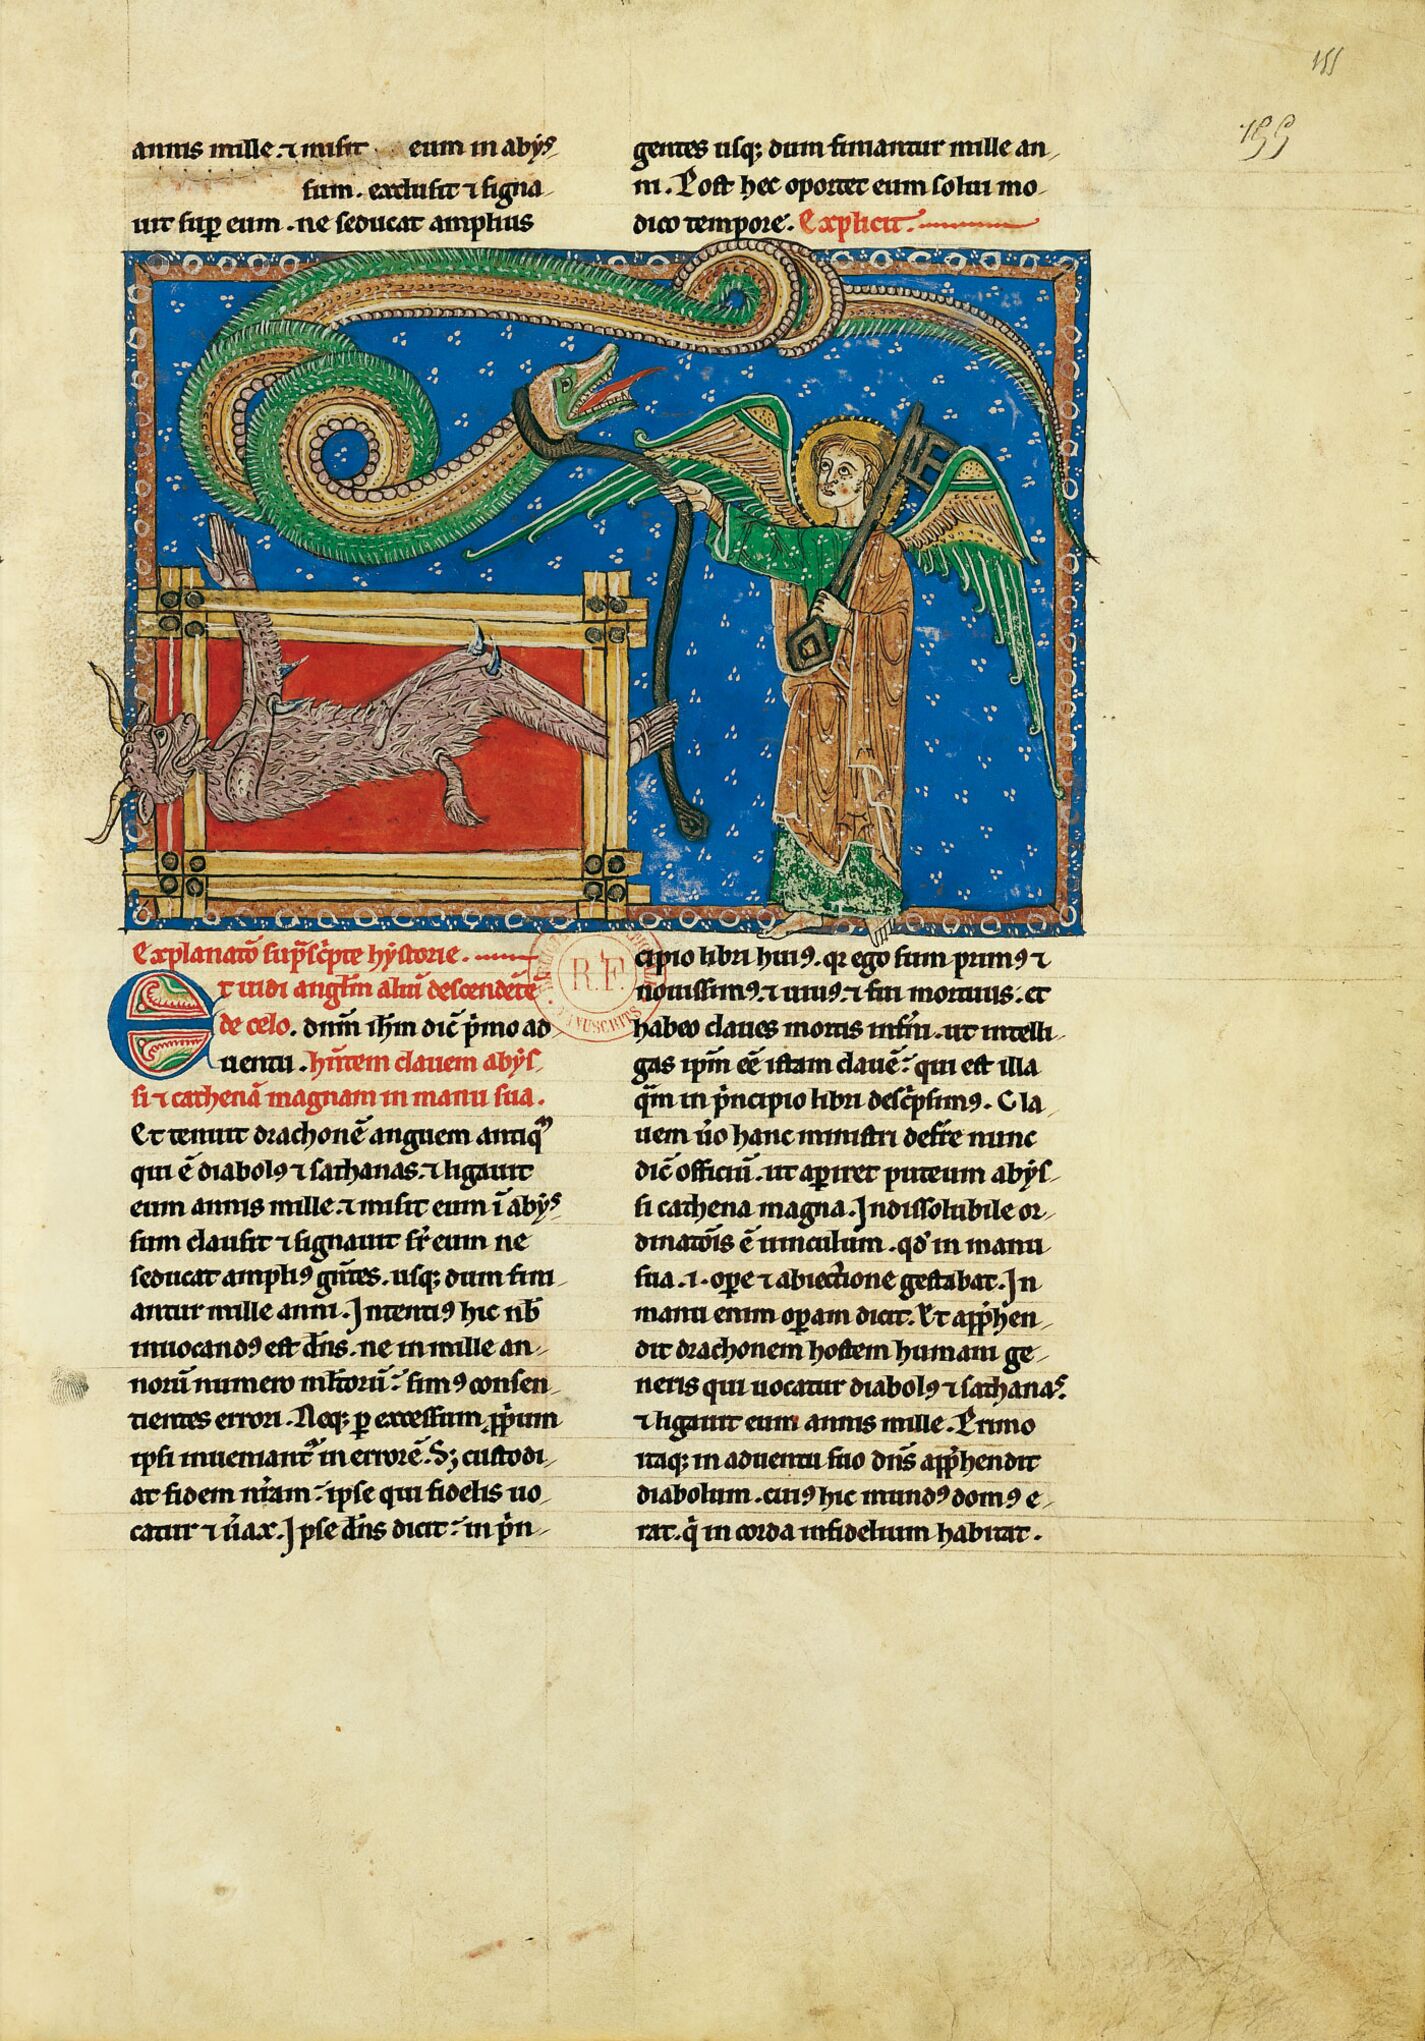 155
155
annis mille. ⁊ misit eum in abyſ
sum. exclusit ⁊ signa-
uit sup̱ eum. ne seducat amplius
gentes usq; dum finiantur mille an-
ni. Post hec oportet eum solui mo-
dico tempore. Explicit.
Explanatō sup̄sc̄pte hystorie.
Et uidi angl̄m aliū descendētē
de celo. dn̄m ih̄m dic̄ p̄mo ad-
uentu. hn̄tem clauem abys-
si ⁊ cathenā magnam in manu sua.
Et tenuit drachonē anguem antiqͣ
qui ē diabolꝯ ⁊ sathanas. ⁊ ligauit
eum annis mille. ⁊ misit eum ī abyſ
sum clausit ⁊ signauit sr̄ eum ne
seducat ampliꝯ gn̄tes. usq; dum fini-
antur mille anni. Intentiꝯ hic nb̄
inuocandꝯ est dn̄s. ne in mille an-
norū numero ml̄torū: simꝯ consen-
tientes errori. Neq; p̱ excessum pp̄um
ipsi inueniantͣ in errorē. Sꝫ custodi-
at fidem nr̄am: ipse qui fidelis uo-
catur ⁊ ūax. Ipse dn̄s dicit: in p̄n-
cipio libri huiꝯ. qr ego sum primꝯ ⁊
nouissimꝯ. ⁊ uiuꝯ. ⁊ fui mortuus. et
habeo claues mortis inf̄ni. ut intelli-
gas ip̄m eē istam clauē: qui est illa
q̄m in p̄ncipio libri desc̄psimꝯ. Cla-
uem ūo hanc ministri defr̄e nunc
dic̄ officiū. ut ap̱iret puteum abys-
si cathena magna. Indissolubile or-
dinatōis ē uinculum. qd̓ in manu
sua .i. op̱e ⁊ abiectione gestabat. In
manu enim op̱am dicit. Et app̄hen-
dit drachonem hostem humani ge-
neris qui uocatur diabolꝯ ⁊ sathanaſ.
⁊ ligauit eum annis mille. Primo
itaq; in aduentu suo dn̄s app̄hendit
diabolum. cuiꝯ hic mundꝯ domꝯ e-
rat. q̄ in corda infidelium habitat.
R.F.